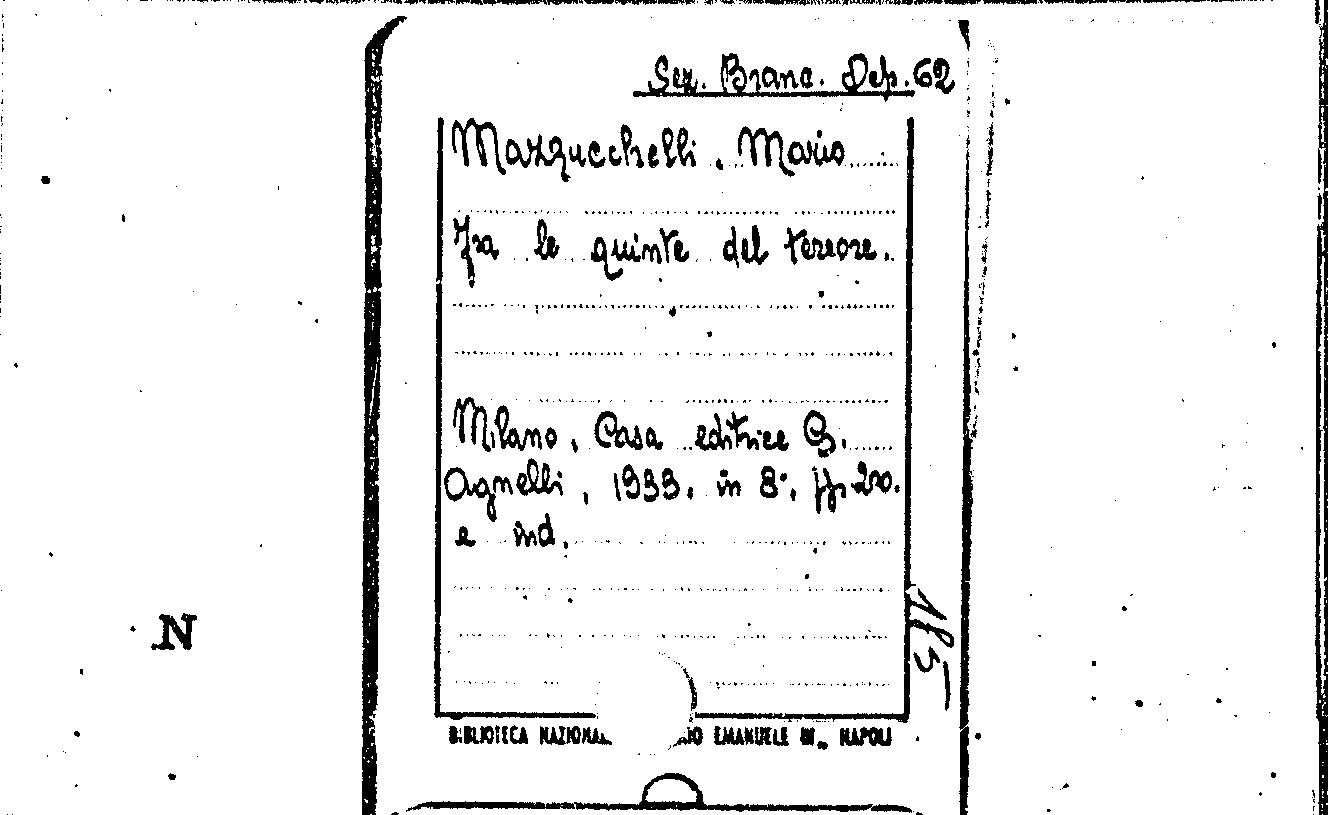 Sez. Branc. Dep. 62
Mazzucchelli, Mario
Fra le quinte del terrore.
Milano, Casa editrice G.
Agnelli, 1933. in 8°, pp.
e ind.
185
N
BIBLIOTECA EMANUELE III, NAPOLI